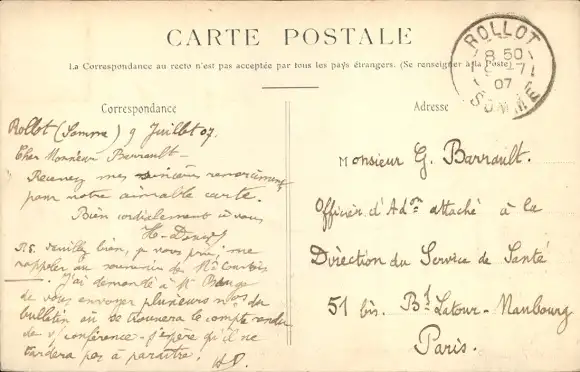 CARTE POSTALE
La Correspondance au recto n'est pas acceptée par tous les pays étrangers. (Se renseigner à la Poste)
ROLLOT
8 50
07
SOMME
Correspondance
Rollot (Somme) 9 Juillet 07.
Cher Monsieur Barrault -
Recevez mes sincères remerciements
pour votre aimable carte.
Bien cordialement à vous
H.
PS. veuillez bien, je vous prie, me
rappeler au souvenir de
J'ai demandé à Mr
de vous envoyer plusieurs nos du
bulletin où se trouvera le compte rendu
de v/ conférence - J'espère qu'il ne
tardera pas à paraître.
HD.
Adresse
Monsieur G. Barrault.
Officier d'Adon attaché à la
Direction du Service de Santé
51 bis. Bd Latour-Maubourg
Paris.